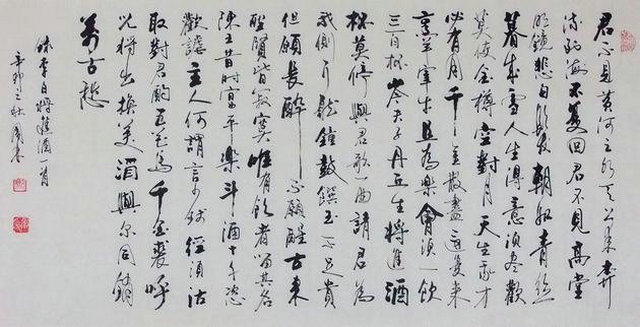 君不見黃河之水天上來奔
流到海不復回君不見高堂
明鏡悲白髮朝如青絲
暮成雪人生得意須盡歡
莫使金樽空對月天生我才
必有用千金散盡還復來
烹羊宰牛且為樂會須一飲
三百杯岑夫子丹丘生將進酒
杯莫停與君歌一曲請君為
我側耳聽鐘鼓饌玉不足貴
但願長醉不願醒古來
聖賢皆寂寞唯有飲者留其名
陳王昔時宴平樂斗酒十千恣
歡謔主人何謂言少錢徑須沽
取對君酌五花馬千金裘呼
兒將出換美酒與爾同銷
萬古愁
李白將進酒一首
辛卯之秋